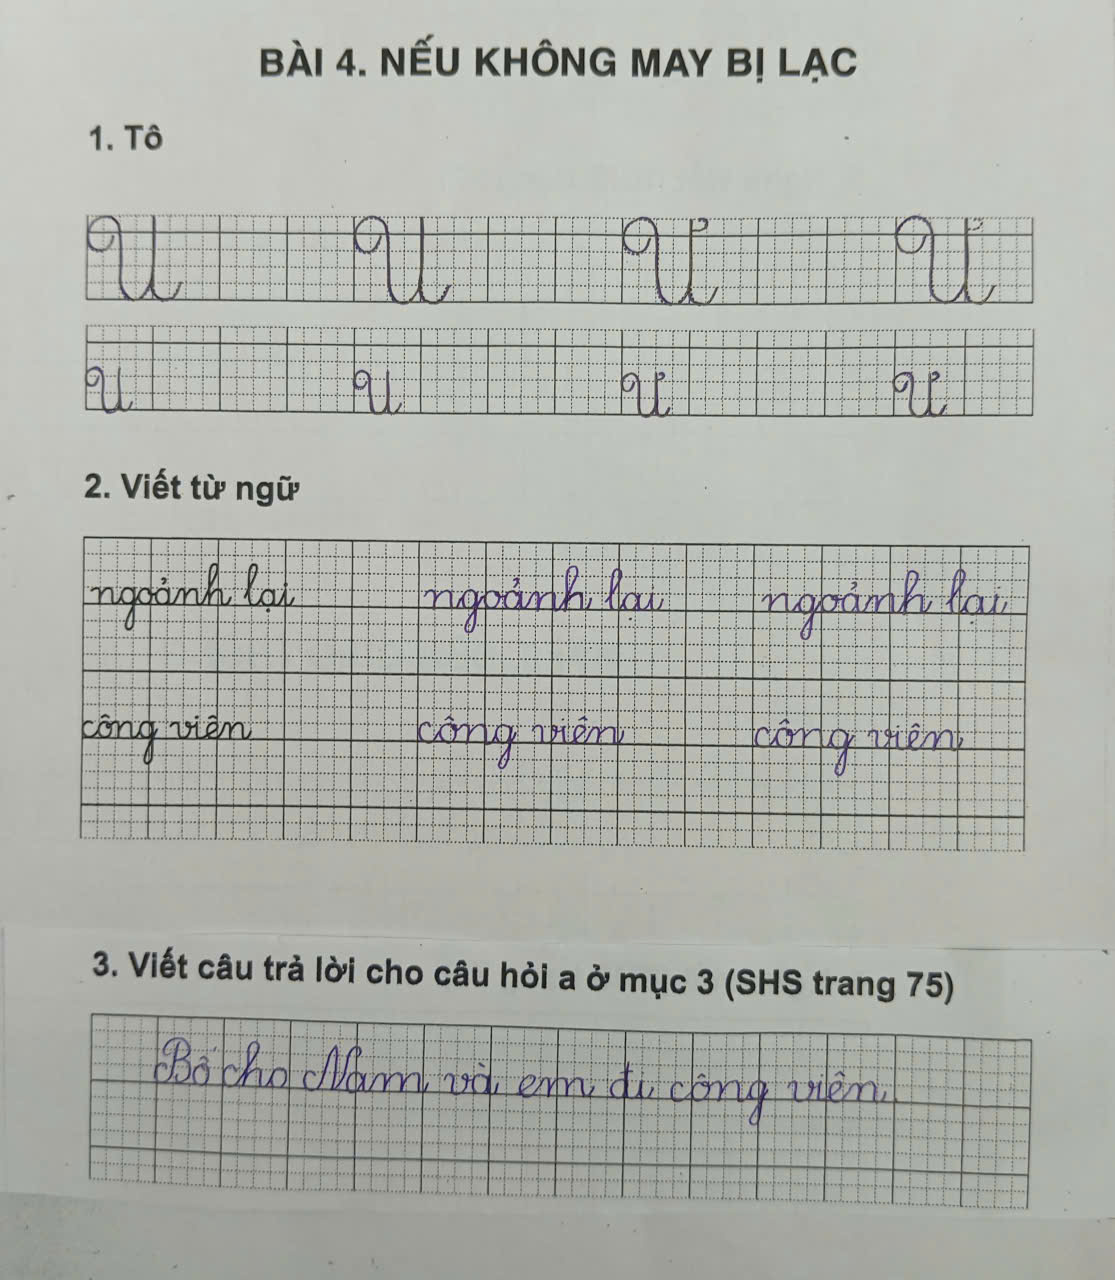 BÀI 4. NẾU KHÔNG MAY BỊ LẠC
1. Tô
U U Ư Ư
U U Ư Ư
2. Viết từ ngữ
ngoảnh lại ngoảnh lại ngoảnh lại
công viên công viên công viên
3. Viết câu trả lời cho câu hỏi a ở mục 3 (SHS trang 75)
Bố cho Nam và em đi công viên.